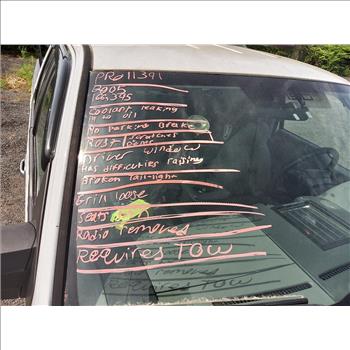 PRO11391
2005
166,395
Coolant leaking
in to oil
No parking Breake
RUST scratches
Driver window
Has difficulties raising
Broken tail-light
Grill loose
Seats
Radio removed
Requires TOW